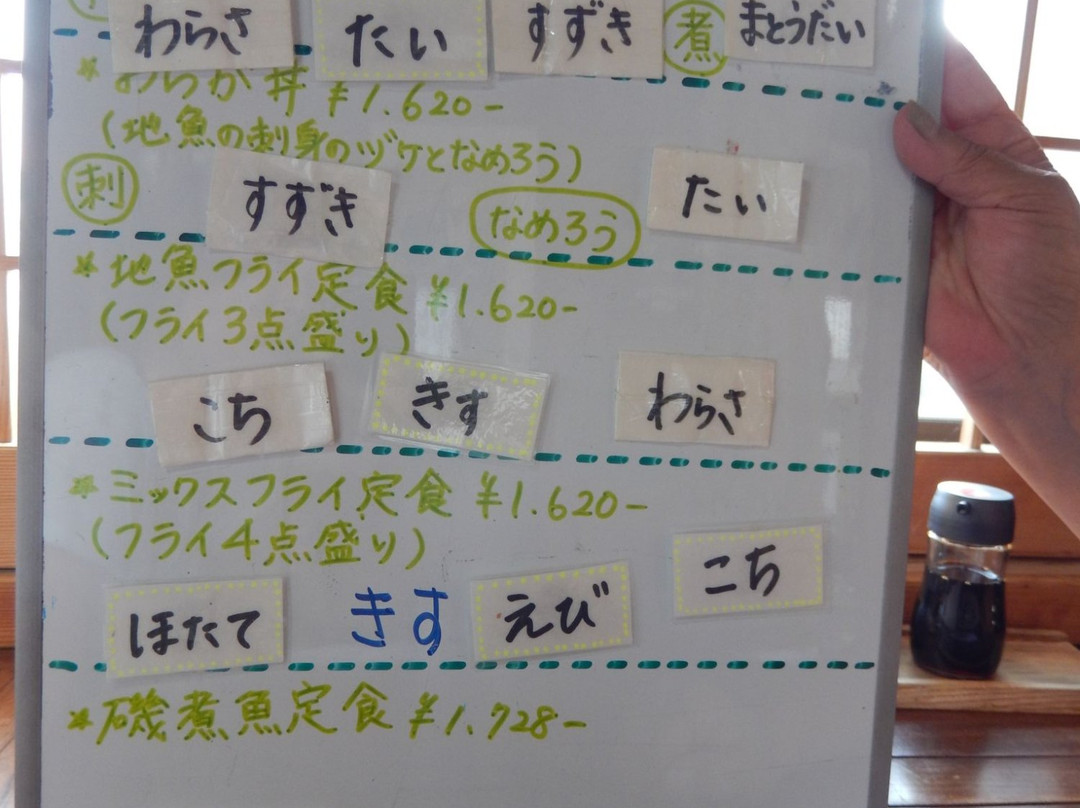 わらさ たい すずき 煮 まとうだい
*おらが丼 ¥1.620-
(地魚の刺身のヅケとなめろう)
刺 すずき なめろう たい
*地魚フライ定食 ¥1.620-
(フライ3点盛り)
こち きす わらさ
*ミックスフライ定食 ¥1.620-
(フライ4点盛り)
ほたて きす えび こち
*磯煮魚定食 ¥1.728-